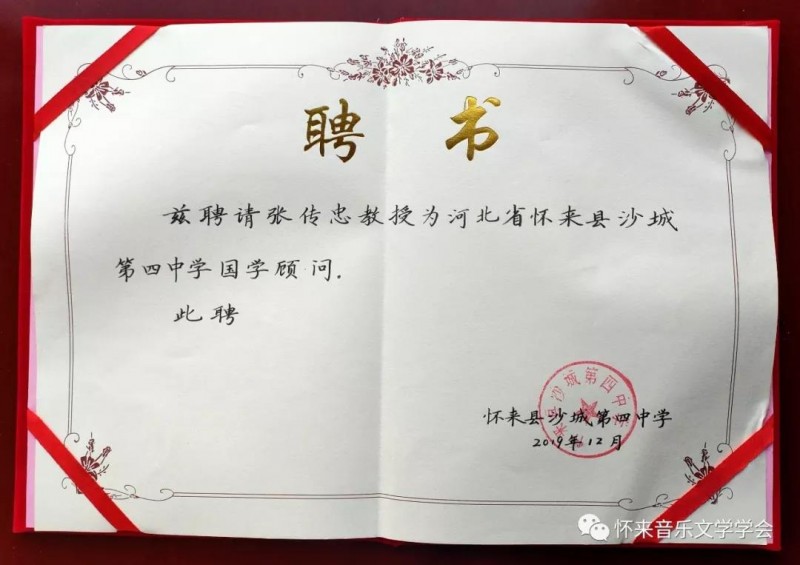 聘 书
兹聘请张传忠教授为河北省怀来县沙城
第四中学国学顾问.
此聘
怀来县沙城第四中学
2019年12月
怀来县沙城第四中学
怀来音乐文学学会